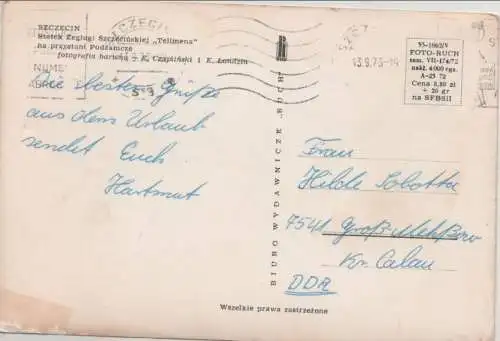 SZCZECIN
Statek Żeglugi Szczecińskiej „Telimena"
na przystani Podzamcze
fotografia barwna — K. Czapiński i K.
Die besten Grüße
aus dem Urlaub
sendet Euch
Hartmut
BIURO WYDAWNICZE „RUCH"
SZCZECIN
NUME
3.9.73-14
55-1062/V
FOTO-RUCH
zam. VII-174/72
nakł. 4 000 egz.
A-25 72
Cena 3,80 zł
+ 20 gr
na SFBSiI
Frau
Hilde Sobotta
7541 Groß-Mehßow
Kr. Calau
DDR
Wszelkie prawa zastrzeżone